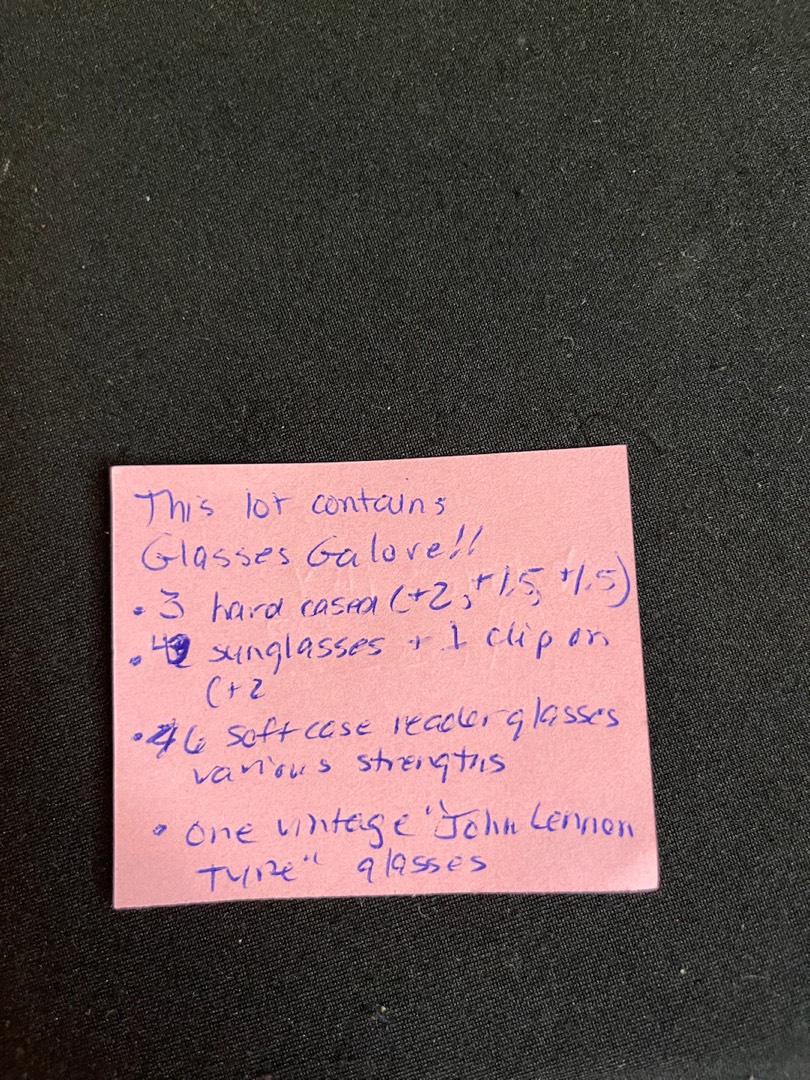 This lot contains
Glasses Galore!!
• 3 hard cased (+2, +1.5, +1.5)
• 4 sunglasses + 1 clip on
(+2
• 6 soft case reader glasses
various strengths
• one vintage "John Lennon
Type" glasses